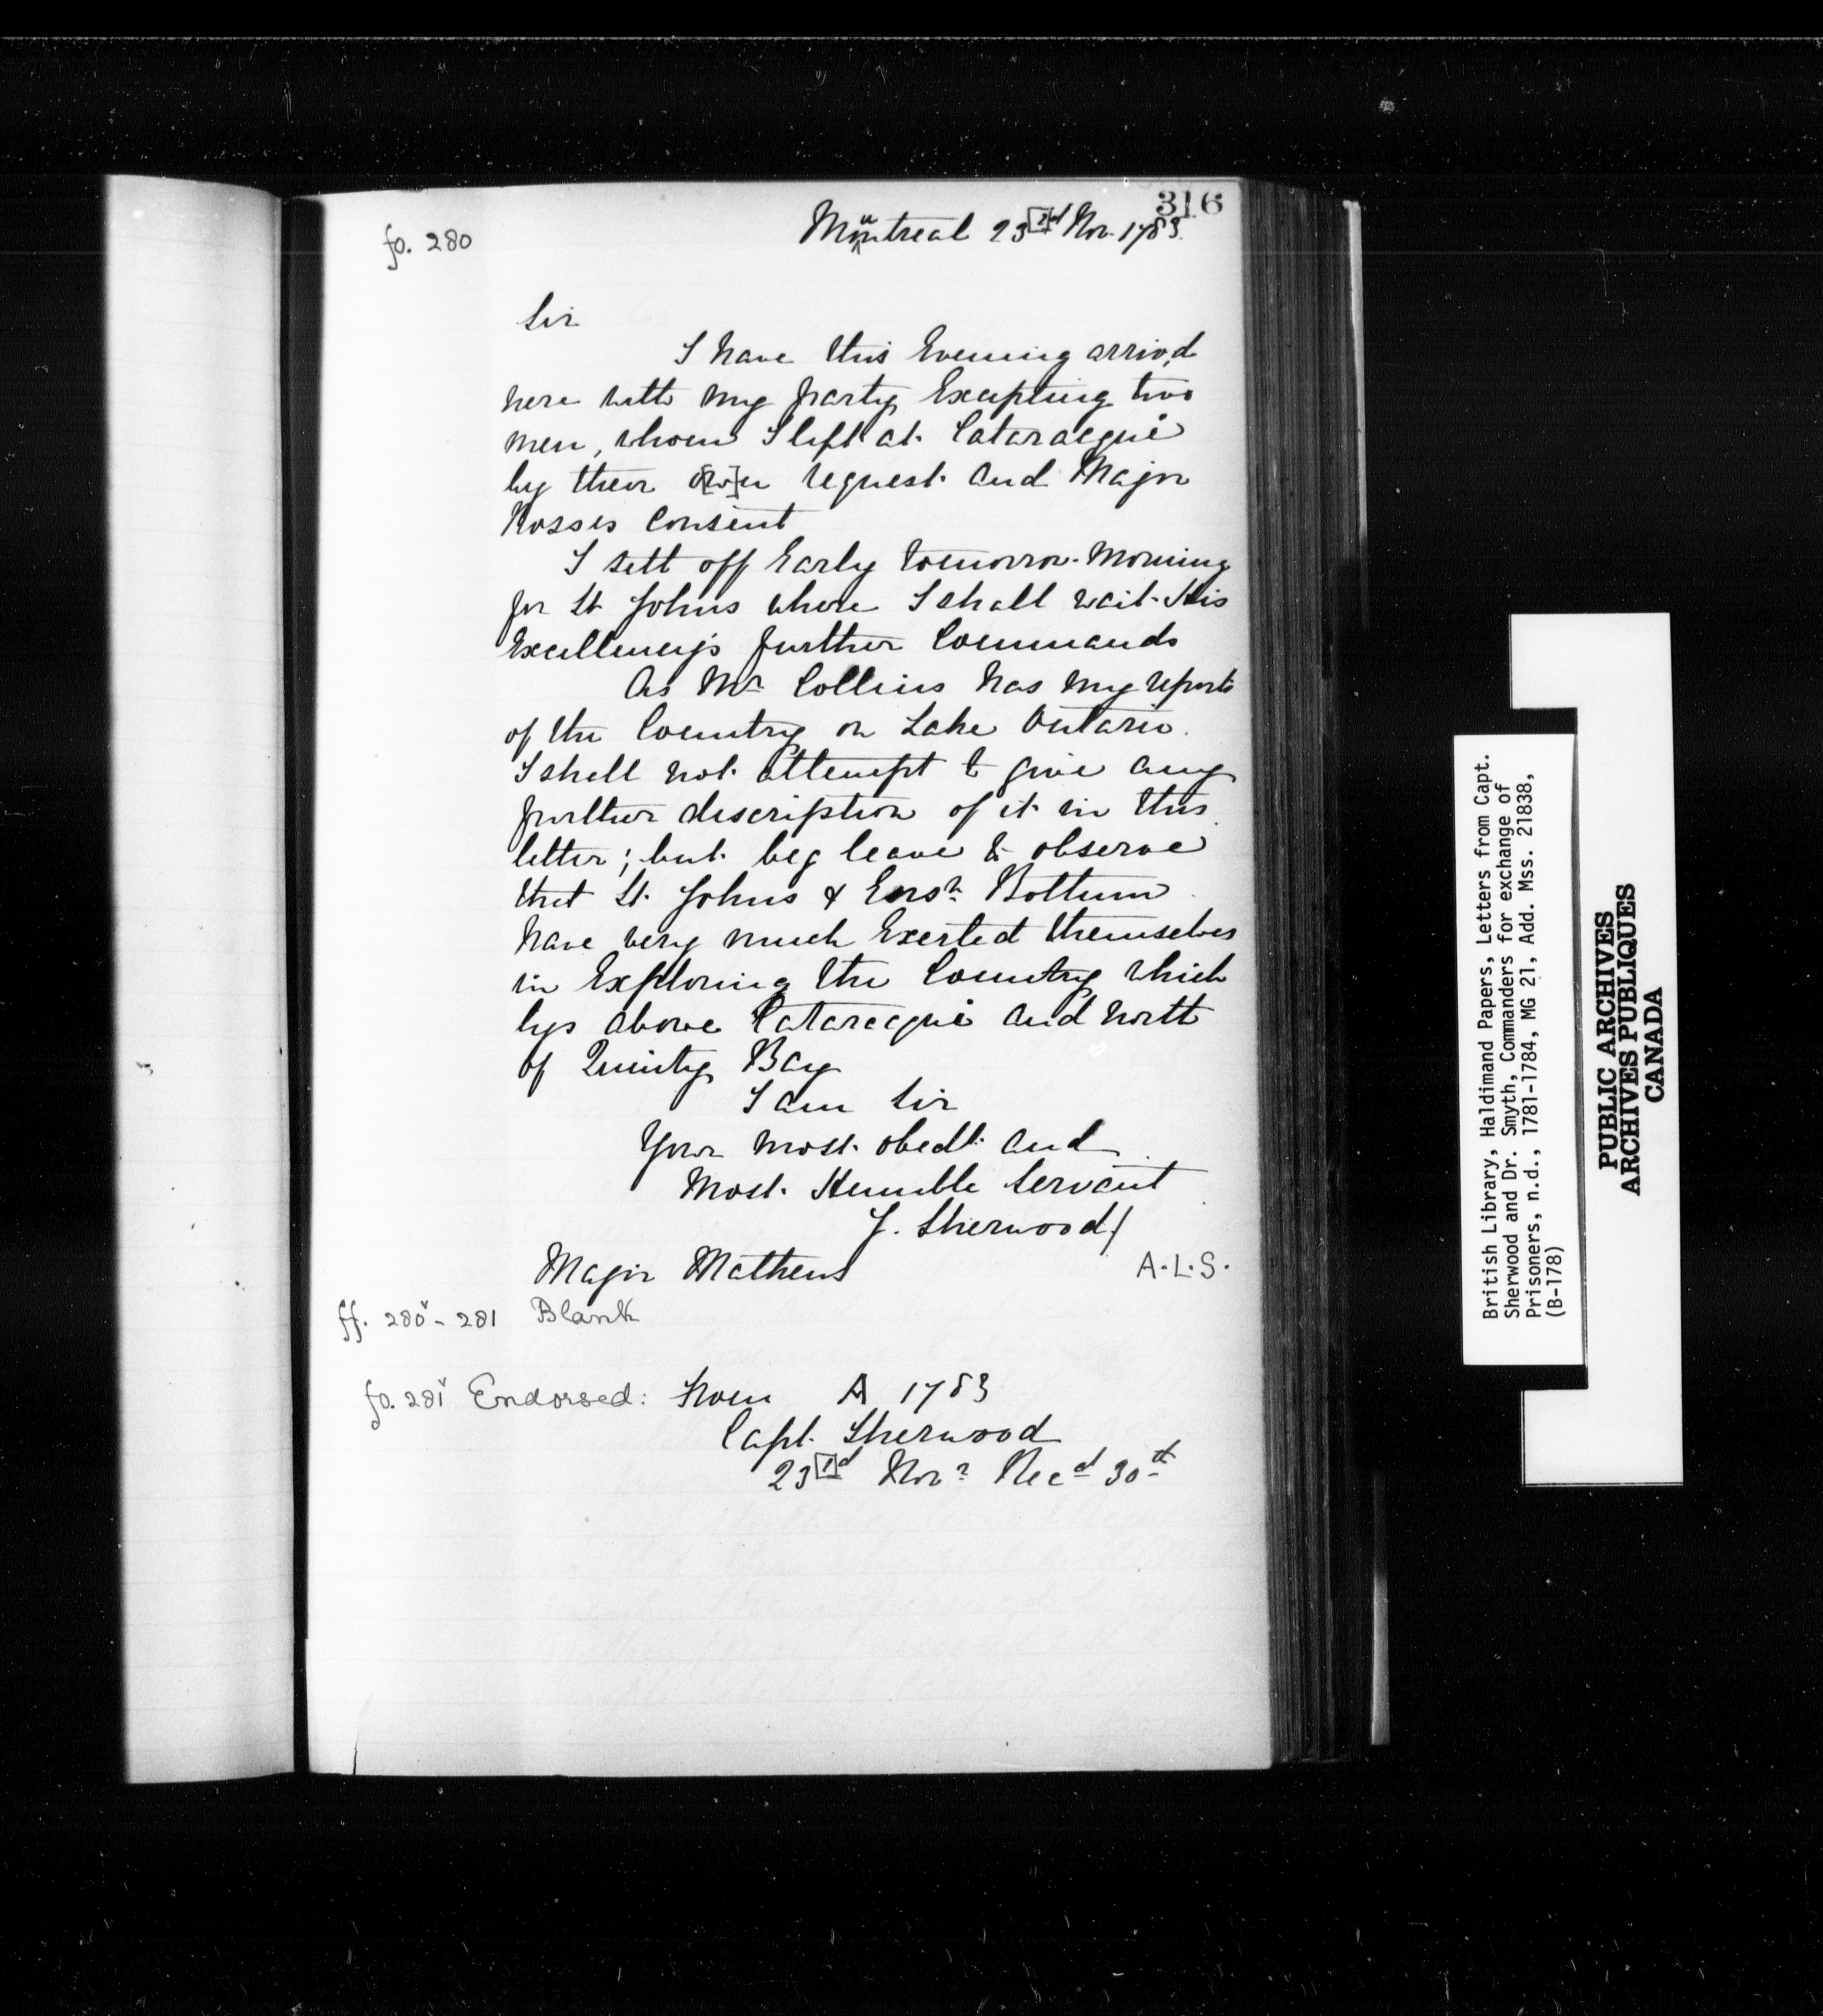 316
fo. 280
Muntreal 23[?]d Nov. 1783.
Sir
I have this Evening arrivd
here with my party, Excepting two
men, whom I left at Cataraequi
by their o[w]n request and Major
Rosses Consent
I sett off Early tomorrow Morning
for St Johns where I shall wait His
Excellency's further Commands
As Mr Collins has my reports
of the Country on Lake Ontario.
I shall not attempt to give any
further description of it in this
letter; but beg leave to observe
that Lt. Johns & Ensn Bottum
have very much Exerted themselves
in Exploring the Country which
lys above Cataraequi and north
of Quinty Bay
I am Sir
Your most obedt and
Most Humble Servant
J. Sherwood/
Major Mathews
A.L.S.
ff. 280v - 281 Blank
fo. 281v Endorsed: From A 1783
Capt. Sherwood
23[?]d Novr Recd 30th
British Library, Haldimand Papers, Letters from Capt.
Sherwood and Dr. Smyth, Commanders for exchange of
Prisoners, n.d., 1781-1784, MG 21, Add. Mss. 21838,
(B-178)
PUBLIC ARCHIVES
ARCHIVES PUBLIQUES
CANADA